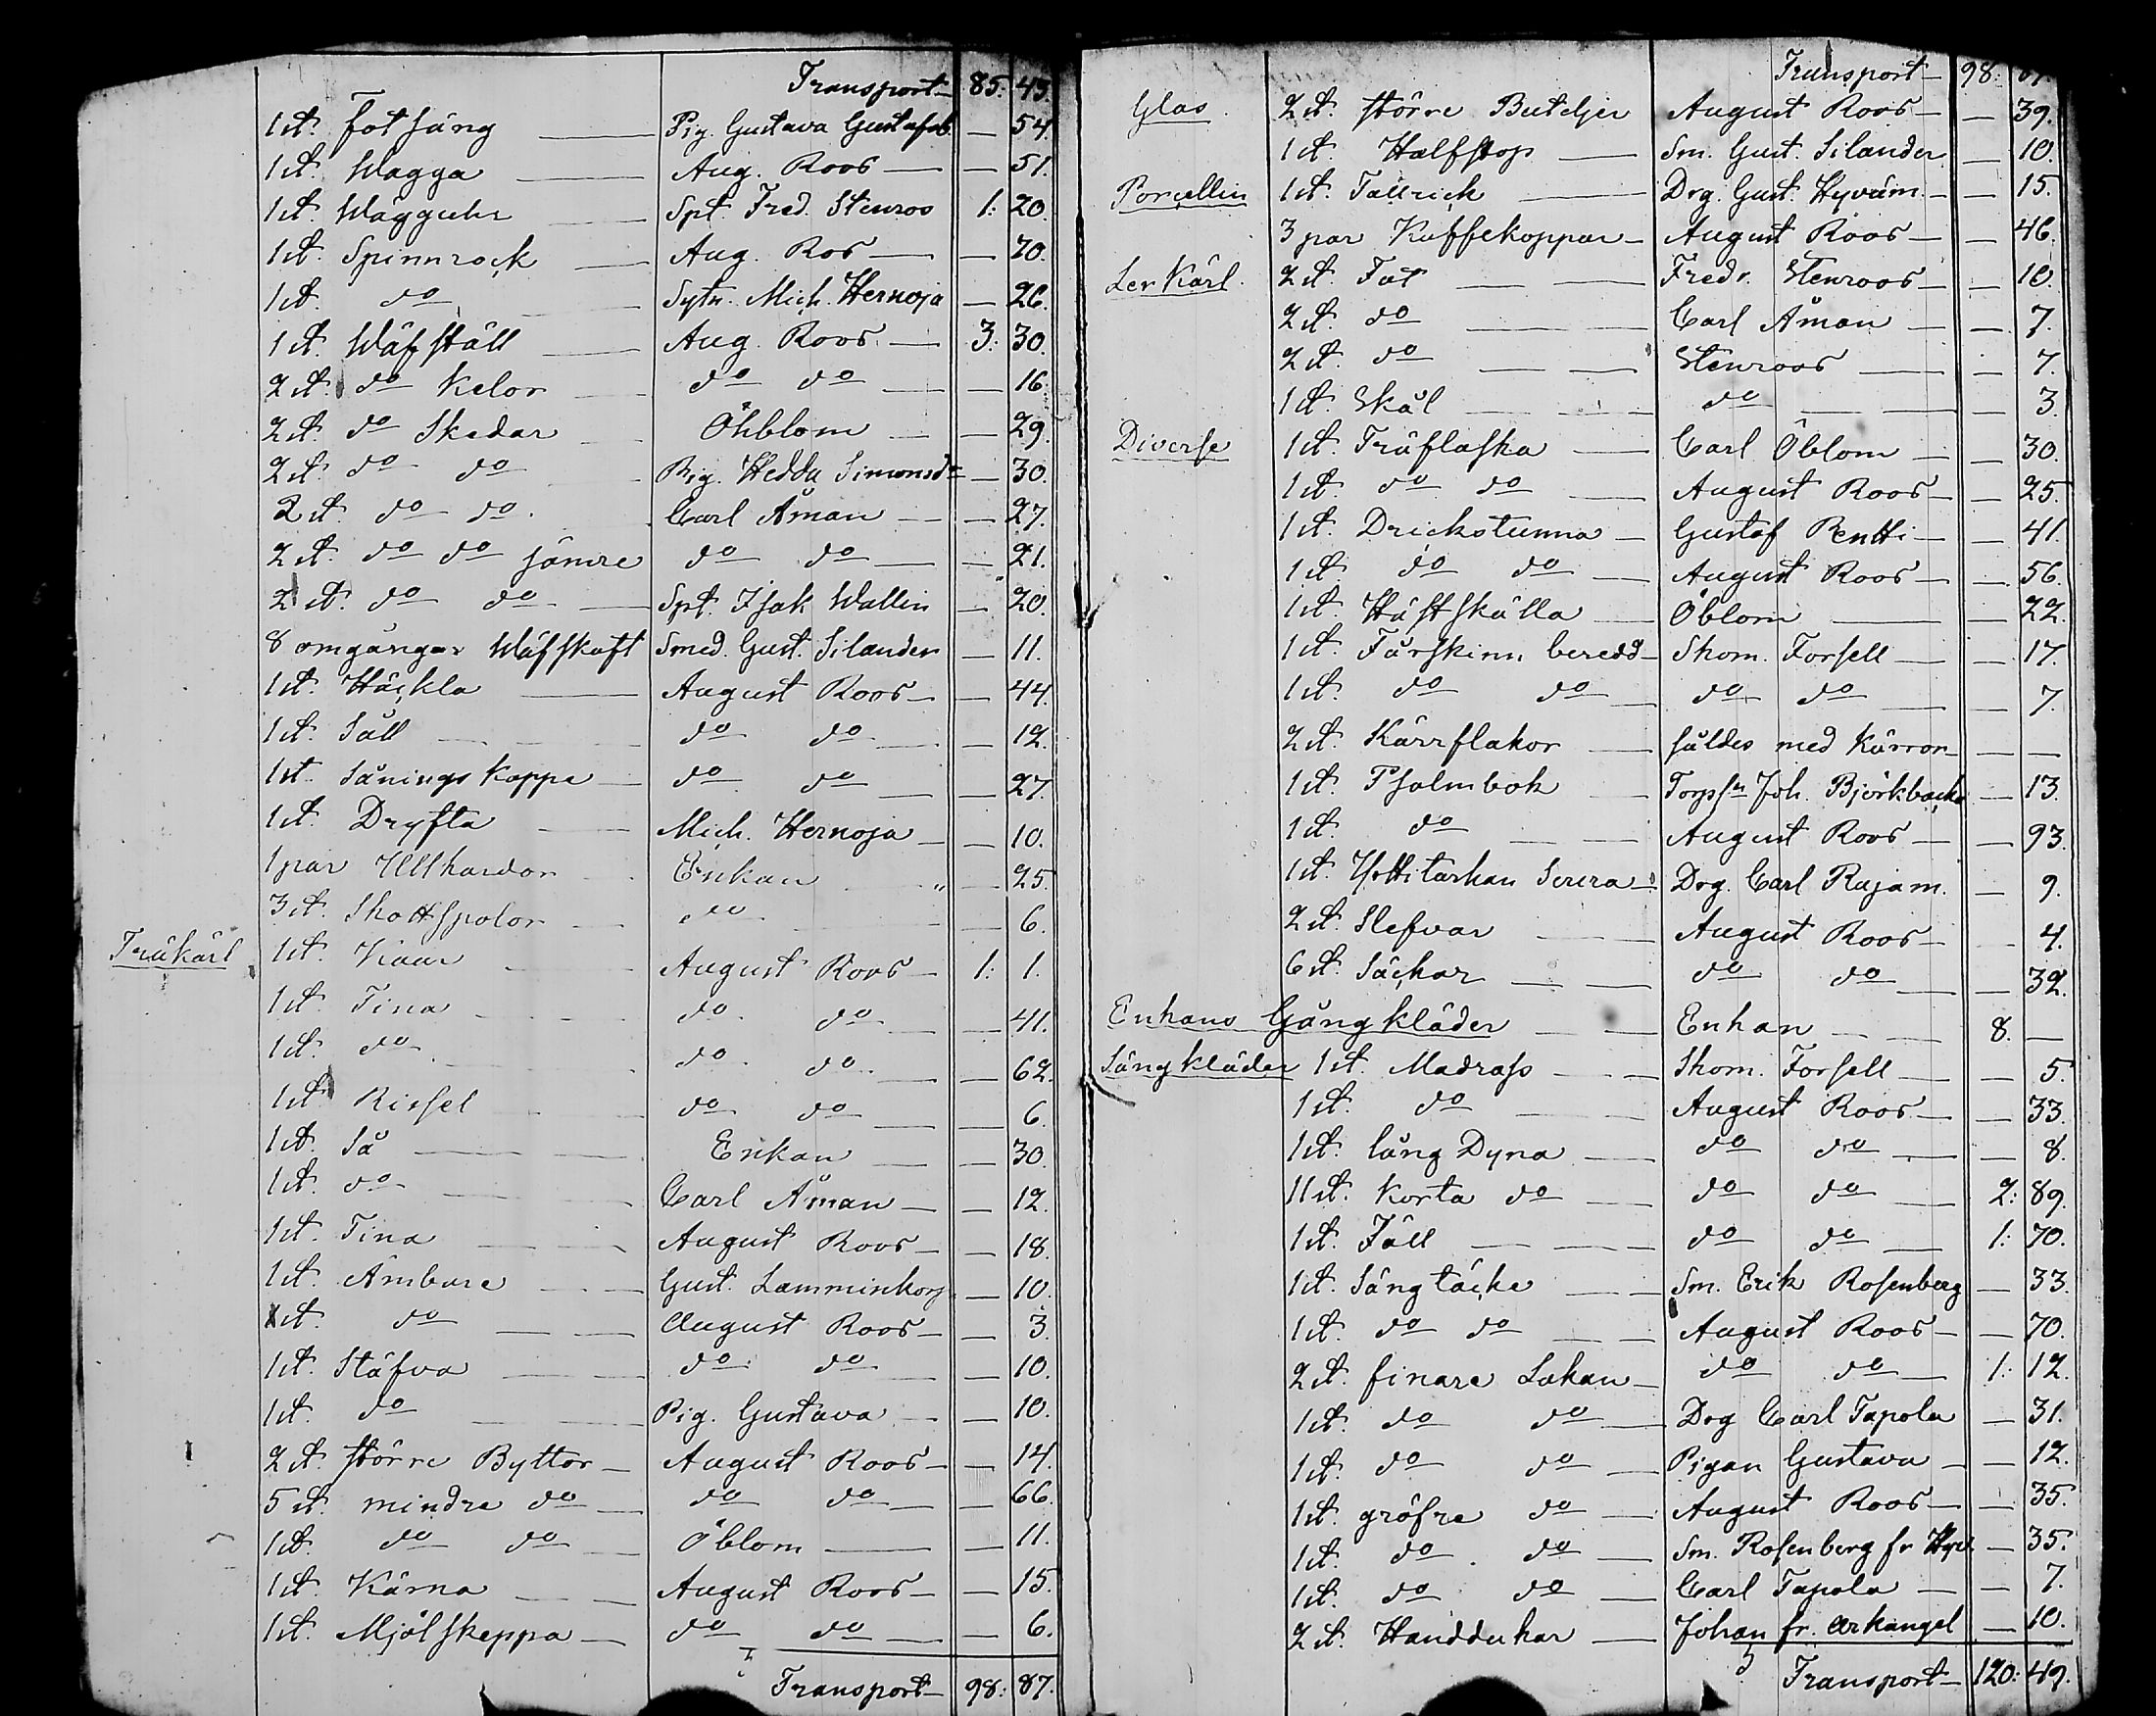 Transport 85. 45.
1 st. Fotsäng Pig. Gustava Gustafsd. — 54.
1 st. Wagga Aug. Roos — 51.
1 st. Wägguhr Spt. Fred. Stenros 1: 20.
1 st. Spinnrock Aug. Ros — 70.
1 st. do Sytn. Mich. Hernoja — 26.
1 st. Wäfställ Aug. Roos 3: 30.
2 st. do Kelor do do — 16.
2 st. do Skedar Öhblom — 29.
2 st. do do Pig. Hedda Simonsdr — 30.
2 st. do do Carl Åman — 27.
2 st. do do sämre do do — 21.
2 st. do do Spt. Isak Wallin — 20.
8 omgångar Wäfskaft Smed. Gust. Silander — 11.
1 st. Häckla August Roos — 44.
1 st. Såll do do — 12.
1 st. Sånings Koppe do do — 27.
1 st. Dryfta Mich. Hernoja — 10.
1 par Ullkardor Enkan — 25.
3 st. Skottspolor do — 6.
Träkärl 1 st. Kaar August Roos 1: 1.
1 st. Tina do do — 41.
1 st. do do do — 62.
1 st. Rissel do do — 6.
1 st. Så Enkan — 30.
1 st. do Carl Åman — 12.
1 st. Tina August Roos — 18.
1 st. Ämbare Gust. Lamminkorp — 10.
1 st. do August Roos — 3.
1 st. Stäfva do do — 10.
1 st. do Pig. Gustava — 10.
2 st. större Byttor August Roos — 14.
5 st. mindre do do do — 66.
1 st. do do Öblom — 11.
1 st. Kärna August Roos — 15.
1 st. Mjölskeppa do do — 6.
Transport 98: 87.
Transport 98:
Glas. 2 st. större Buteljer August Roos — 39.
1 st. Halfstop Sm. Gust. Silander — 10.
Porcellin 1 st. Tallrick Drg. Gust. Hyväm. — 15.
3 par Kaffekoppar August Roos — 46.
Ler Kärl. 2 st. Fat Fredr. Stenroos — 10.
2 st. do Carl Åman — 7.
2 st. do Stenroos — 7.
1 st. Skål do — 3.
Diverse 1 st. Träflaska Carl Öblom — 30.
1 st. do do August Roos — 25.
1 st. Drickstunna Gustaf Rentti — 41.
1 st. do do August Roos — 56.
1 st. Hästskälla Öblom — 22.
1 st. Fårskinn beredd Skom. Forsell — 17.
1 st. do do do do — 7.
2 st. Kärrflakor såldes med Kärron — —
1 st. Psalmbok Torpsn Joh. Björkbacka — 13.
1 st. do August Roos — 93.
1 st. Drg. Carl Rajam. — 9.
2 st. Slefvar August Roos — 4.
6 st. Säckar do do — 32.
Enkans Gångkläder Enkan 8. —
Sängkläder 1 st. Madrass Skom. Forsell — 5.
1 st. do August Roos — 33.
1 st. lång Dyna do do — 8.
11 st. Korta do do do 2: 89.
1 st. Fäll do do 1: 70.
1 st. Sängtäcke Sm. Erik Rosenberg — 33.
1 st. do do August Roos — 70.
2 st. finare Lakan do do 1: 12.
1 st. do do Drg Carl Tapola — 31.
1 st. do do Pigan Gustava — 12.
1 st. gröfre do August Roos — 35.
1 st. do do Sm. Rosenberg fr — 35.
1 st. do do Carl Tapola — 7.
2 st. Handdukar Johan fr. Arkangel — 10.
Transport 120: 49.